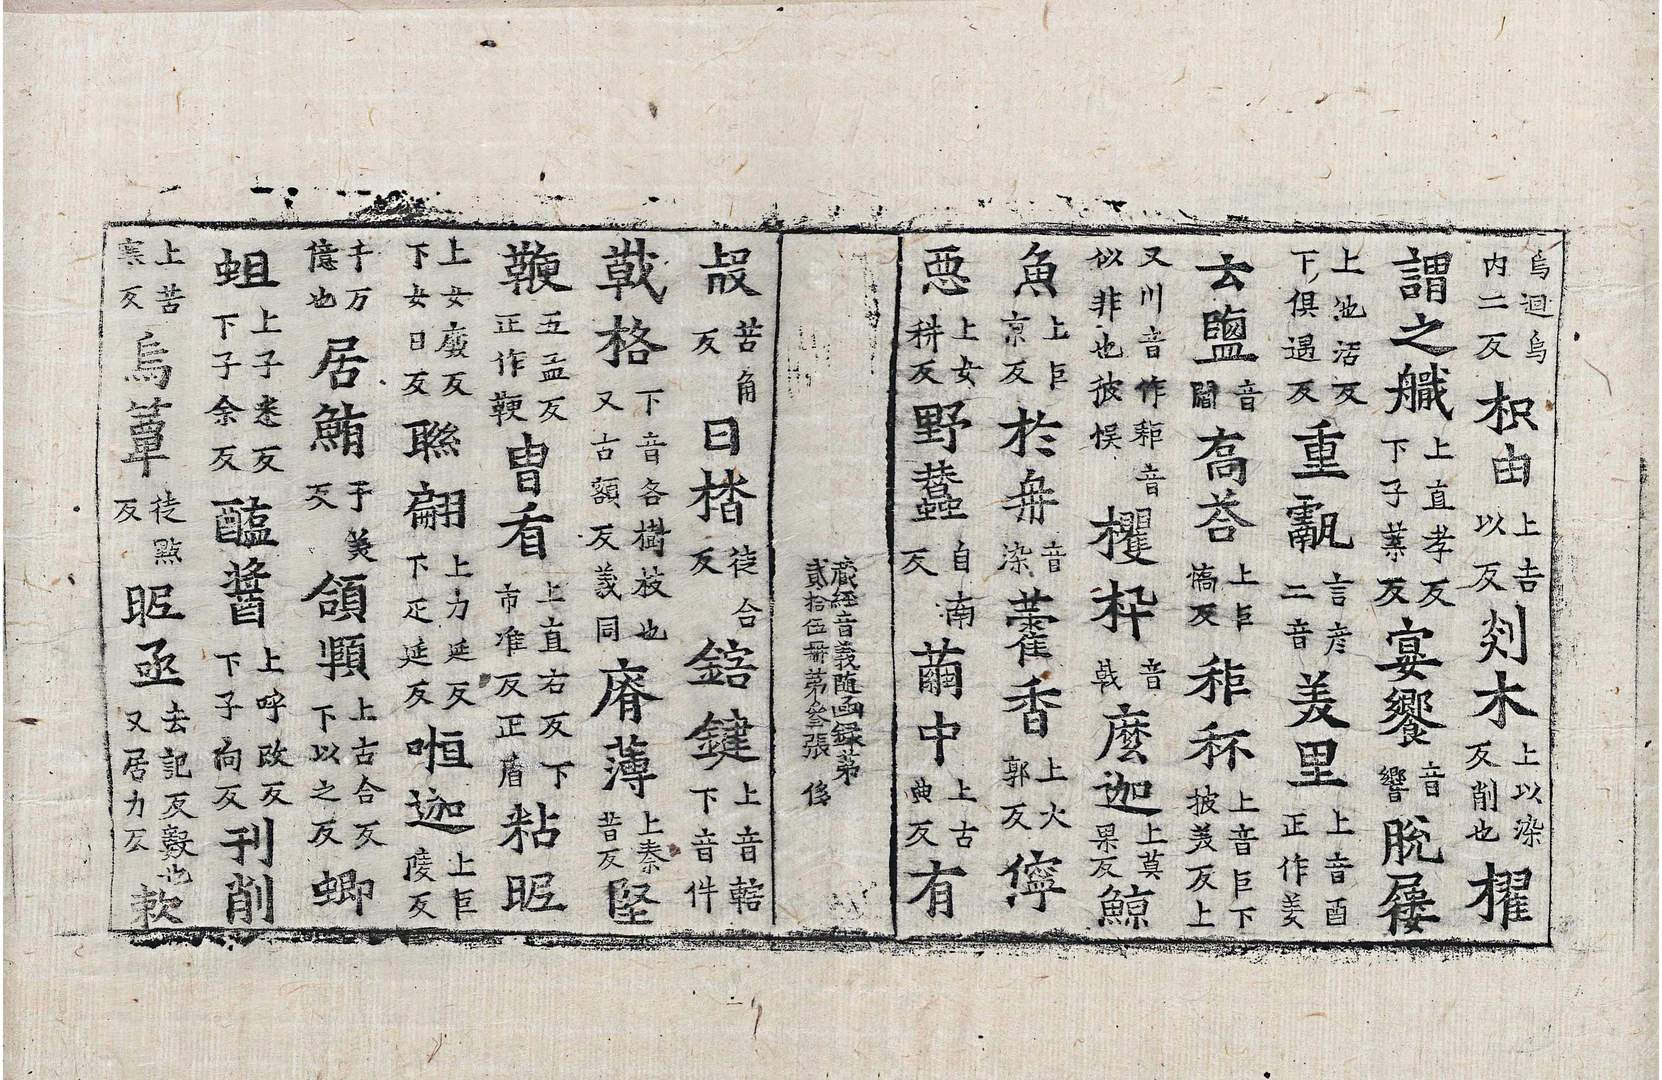 烏迴烏内二反 枳由上吉以反 剡木上以染反削也 櫂
謂之艥上直孝反下子葉反 宴饗音響 脫屨
上他活反下俱遇反 重甗言彦二音 羑里上音酉正作羑
云鹽音閻 髙荅上巨憍反 秬秠上音巨下披羙反上
又川音作秬音似非也彼悮 欋枠音戟 麼迦上莫果反 鯨
魚上巨京反 於舟音染 藿香上火郭反 儜
惡上女耕反 野蠶自南反 繭中上古典反 有
藏經音義随函録第貳拾伍冊第叅張 後
㱿苦角反 曰榙徒合反 鎋鍵上音轄下音件
戟格下音各樹枝也又古額反義同 瘠薄上秦昔反 堅
鞕五孟反正作鞕 胄看上直右反下市准反正盾 粘昵
上女廉反下女日反 聯翩上力延反下疋延反 㘆迦上巨陵反
千万億也 居鮪于羙反 頜顊上古合反下以之反 蝍
蛆上子悉反下子余反 醯醬上呼改反下子向反 刋削
上苦寒反 烏蕈徒㸃反 昵亟去記反數也又居力反 欶